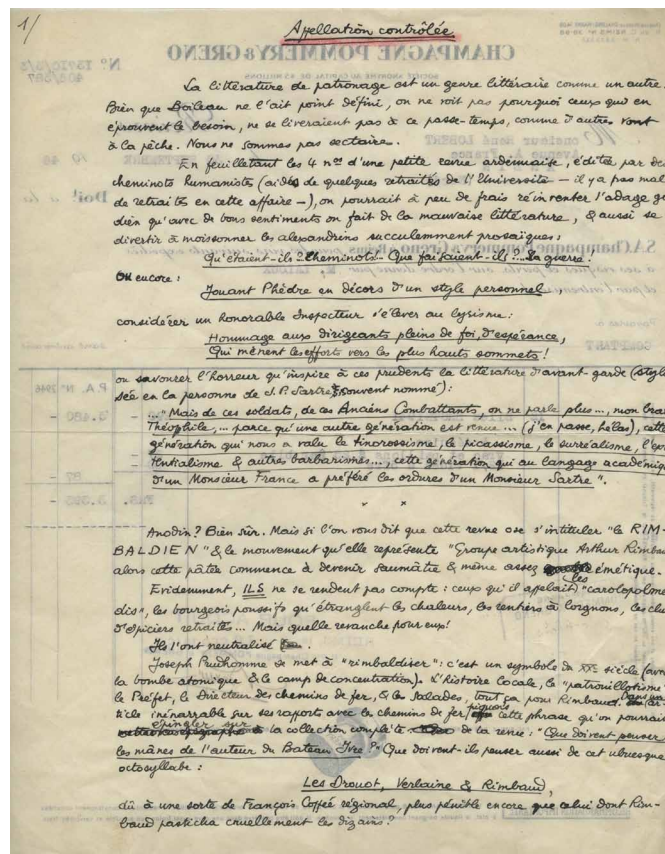 1/
Appellation contrôlée
CHAMPAGNE POMMERY & GRENO
La littérature de patronage est un genre littéraire comme un autre.
Bien que Boileau ne l'ait point défini, on ne voit pas pourquoi ceux qui en
éprouvent le besoin, ne se livreraient pas à ce passe-temps, comme d'autres vont
à la pêche. Nous ne sommes pas sectaire.
En feuilletant les 4 nos d'une petite revue ardennaise, éditée par des
cheminots humanistes (aidés de quelques retraités de l'Université — il y a pas mal
de retraités en cette affaire —), on pourrait à peu de frais réinventer l'adage gi
dien qu'avec de bons sentiments on fait de la mauvaise littérature, & aussi se
divertir à moissonner les alexandrins succulemment prosaïques :
Qu'étaient-ils ? Cheminots. Que faisaient-ils ? La guerre !
ou encore :
Jouant Phèdre en décors d'un style personnel,
considérer un honorable Inspecteur s'élever au lyrisme :
Hommage aux dirigeants pleins de foi, d'espérance,
Qui mènent les efforts vers les plus hauts sommets !
ou savourer l'horreur qu'inspire à ces prudents la littérature d'avant-garde (style
sée en la personne de J.P. Sartre souvent nommé) :
..." Mais de ces soldats, de ces Anciens Combattants, on ne parle plus..., mon brave
Théophile,... parce qu'une autre génération est venue... (j'en passe, hélas), cette
génération qui nous a valu le tinorossisme, le picassisme, le surréalisme, l'exis
tentialisme & autres barbarismes..., cette génération qui au langage académique
d'un Monsieur France a préféré les ordures d'un Monsieur Sartre ".
Anodin ? Bien sûr. Mais si l'on vous dit que cette revue ose s'intituler "le RIM-
BALDIEN" & le mouvement qu'elle représente "Groupe artistique Arthur Rimbaud
alors cette pâtée commence à devenir saumâtre & même assez émétique.
Evidemment, ILS ne se rendent pas compte : ceux qu'il appelait les "carolopolme
dis", les bourgeois poussifs qu'étranglent les chaleurs, les rentiers à lorgnons, les clubs
d'épiciers retraités... Mais quelle revanche pour eux !
Ils l'ont neutralisé.
Joseph Prudhomme se met à "rimbaldiser" : c'est un symbole du XXe siècle (avec
la bombe atomique & le camp de concentration). L'histoire locale, le "patrouillotisme"
le Préfet, le Directeur des chemins de fer, & les Salades, tout ça pour Rimbaud. Dans un ar-
ticle inénarrable sur ses rapports avec le chemins de fer, piquons cette phrase qu'on pourrait
épingler sur la collection complète de la revue : "Que doivent penser
les mânes de l'auteur du Bateau Ivre ?" Que doivent-ils penser aussi de cet ubuesque
octosyllabe :
Les Drouot, Verlaine & Rimbaud,
dû à une sorte de François Coppée régional, plus pénible encore que celui dont Rim-
baud pasticha cruellement les dizains ?